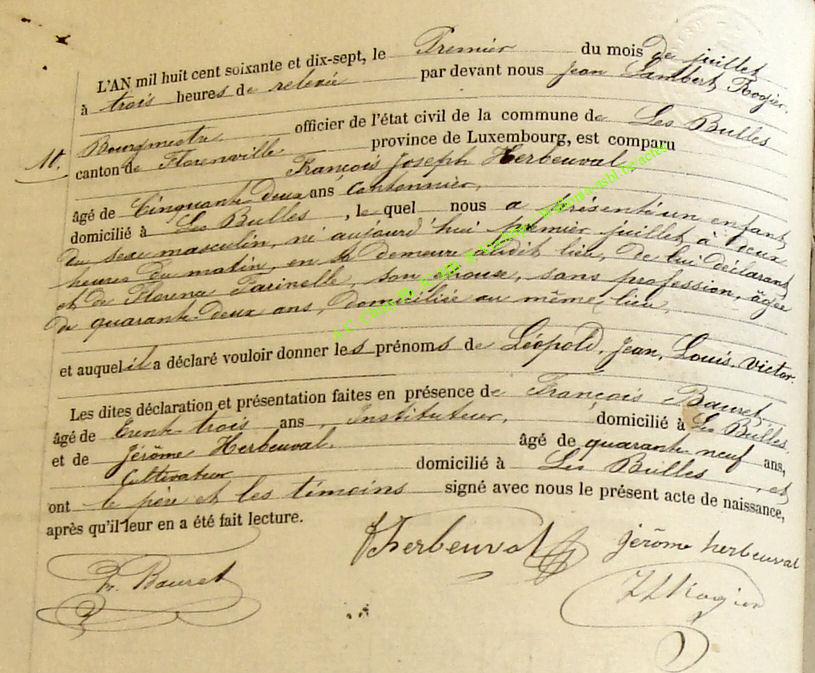 L'AN mil huit cent soixante et dix-sept, le Premier du mois de juillet
à trois heures de relevée par devant nous Jean Lambert Rogier,
Bourgmestre officier de l'état civil de la commune de Les Bulles
10. canton de Florenville province de Luxembourg, est comparu
François Joseph Herbeuval
âgé de Cinquante deux ans Cantonnier,
domicilié à Les Bulles, lequel nous a présenté un enfant
du sexe masculin, né aujourd'hui premier juillet à deux
heures du matin, en sa demeure audit lieu, de lui déclarant
et de Florence Tarinelle, son épouse, sans profession, âgée
de quarante-deux ans, domiciliée au même lieu,
et auquel il a déclaré vouloir donner les prénoms de Léopold, Jean, Louis, Victor.
Les dites déclaration et présentation faites en présence de François Bauret
âgé de trente trois ans, Instituteur, domicilié à Les Bulles,
et de Jérôme Herbeuval âgé de quarante neuf ans,
Cultivateur domicilié à Les Bulles, et
ont le père et les témoins signé avec nous le présent acte de naissance,
après qu'il leur en a été fait lecture.
Herbeuval Jérôme herbeuval
Fr. Bauret JLRogier